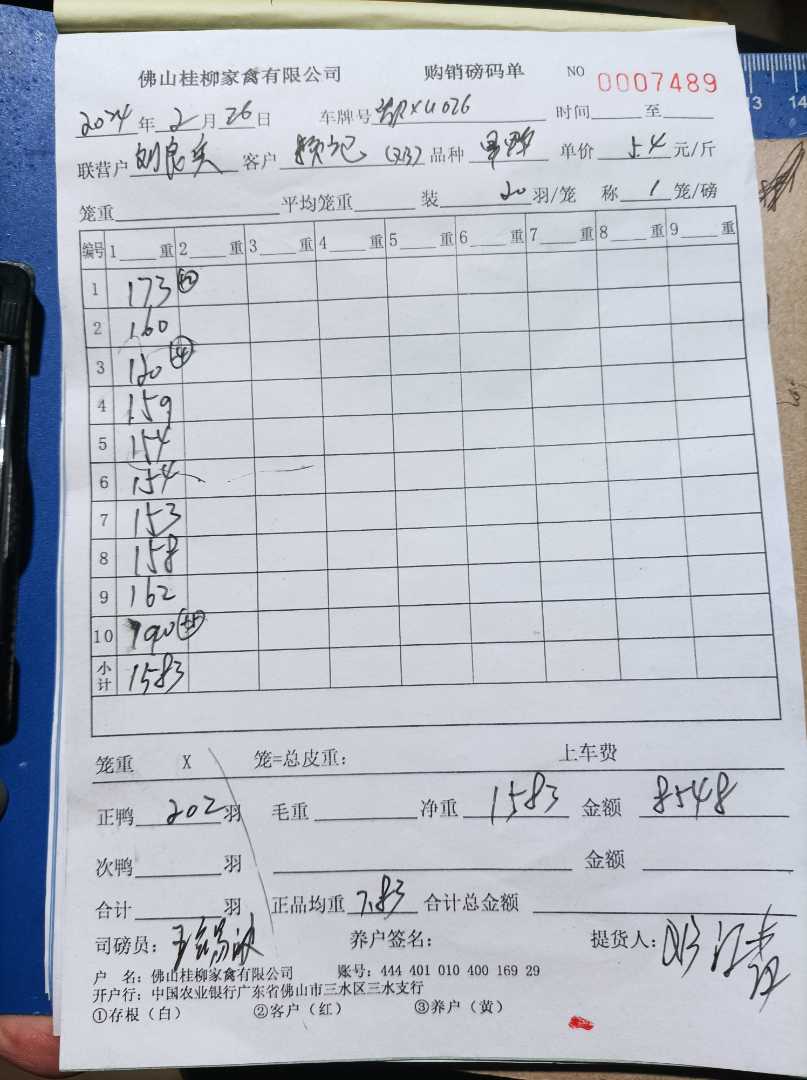 佛山桂柳家禽有限公司 购销磅码单 NO 0007489
2024年2月26日 车牌号 XU026 时间 至
联营户 刘良 客户 (XB) 品种 单价 5.4 元/斤
笼重 平均笼重 装 20 羽/笼 称 1 笼/磅
编号 1 重 2 重 3 重 4 重 5 重 6 重 7 重 8 重 9 重
1 173
2 160
3 120
4 159
5 154
6 154
7 153
8 158
9 162
10 190
小计 1583
笼重 X 笼=总皮重: 上车费
正鸭 202 羽 毛重 净重 1583 金额 8548
次鸭 羽 金额
合计 羽 正品均重 7.83 合计总金额
司磅员: 养户签名: 提货人:
户 名: 佛山桂柳家禽有限公司 账号: 444 401 010 400 169 29
开户行: 中国农业银行广东省佛山市三水区三水支行
①存根(白) ②客户(红) ③养户(黄)